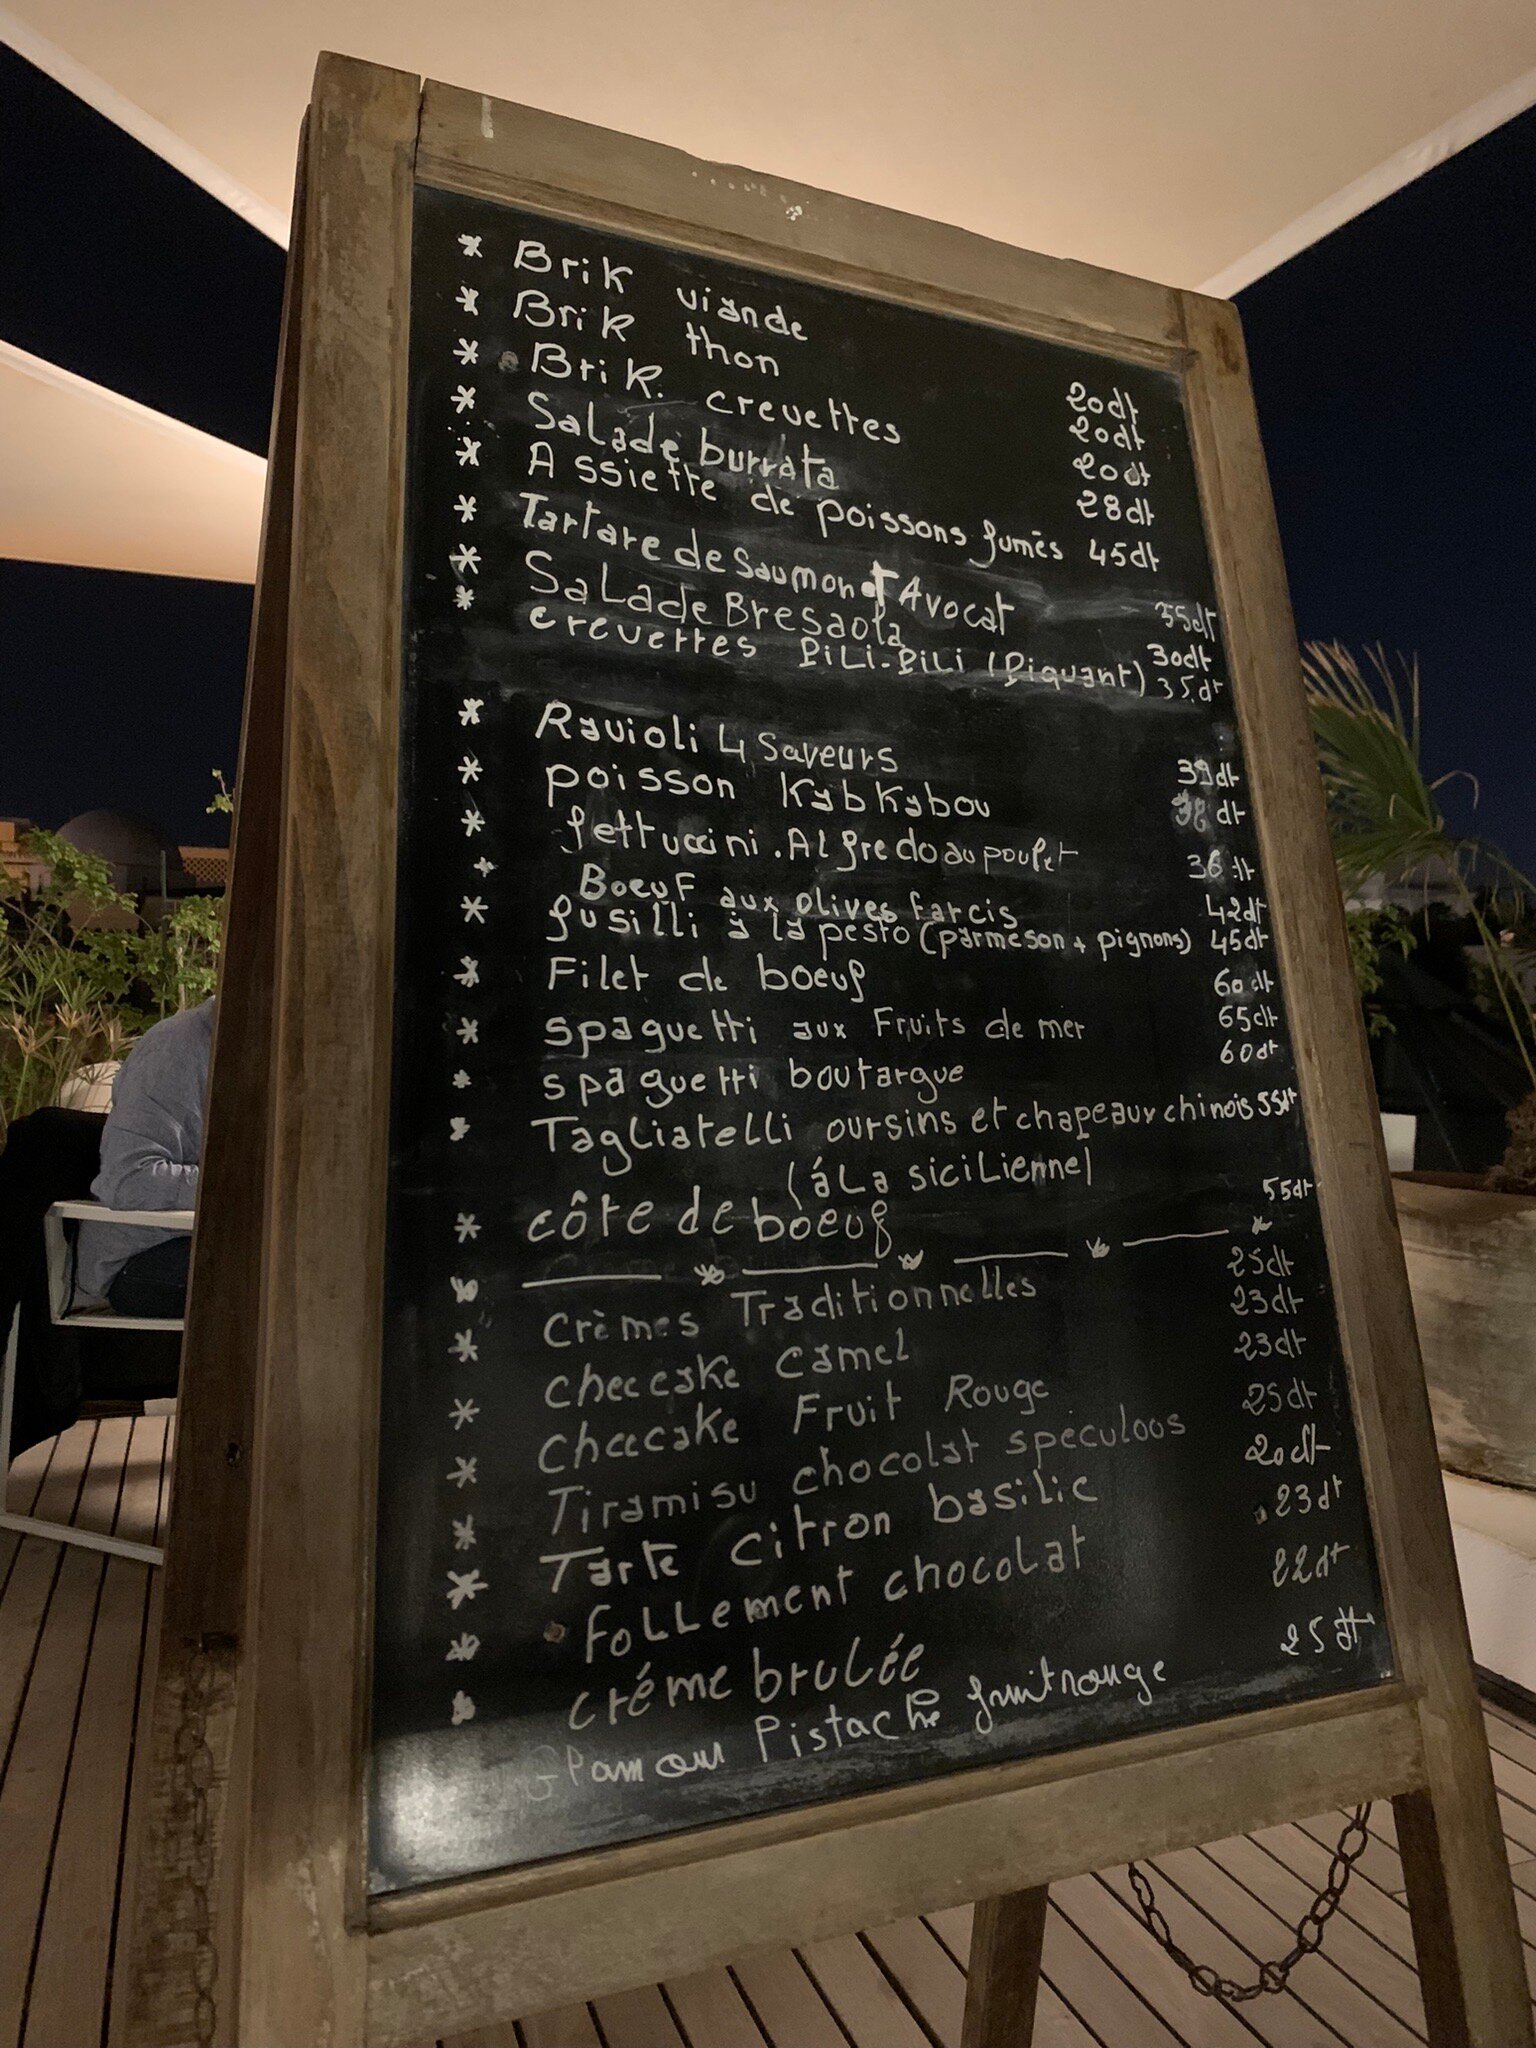 * Brik viande 20dt
* Brik thon 20dt
* Brik. crevettes 20dt
* Salade burrata 28dt
* Assiette de poissons fumés 45dt
* Tartare de Saumon et Avocat 55dt
* Salade Bresaola 30dt
* crevettes PiLi-PiLi (Piquant) 35dt
* Ravioli 4 Saveurs 39dt
* poisson Kabkabou 38dt
* fettuccini.Alfredo au poulet 36dt
* Boeuf aux olives farcis 42dt
* fusilli à la pesto (parmeson + pignons) 45dt
* Filet de boeuf 60dt
* spaguetti aux Fruits de mer 65dt
* spaguetti boutargue 60dt
* Tagliatelli oursins et chapeaux chinois 55dt
(á La siciLienne)
* côte de boeuf 55dt
* Crèmes Traditionnelles 25dt
* cheecake camel 23dt
* cheecake Fruit Rouge 23dt
* Tiramisu chocolat spéculoos 25dt
* Tarte citron basilic 20dt
* foLLement chocolat 23dt
* créme brulée 22dt
Pistache fruit rouge 25dt